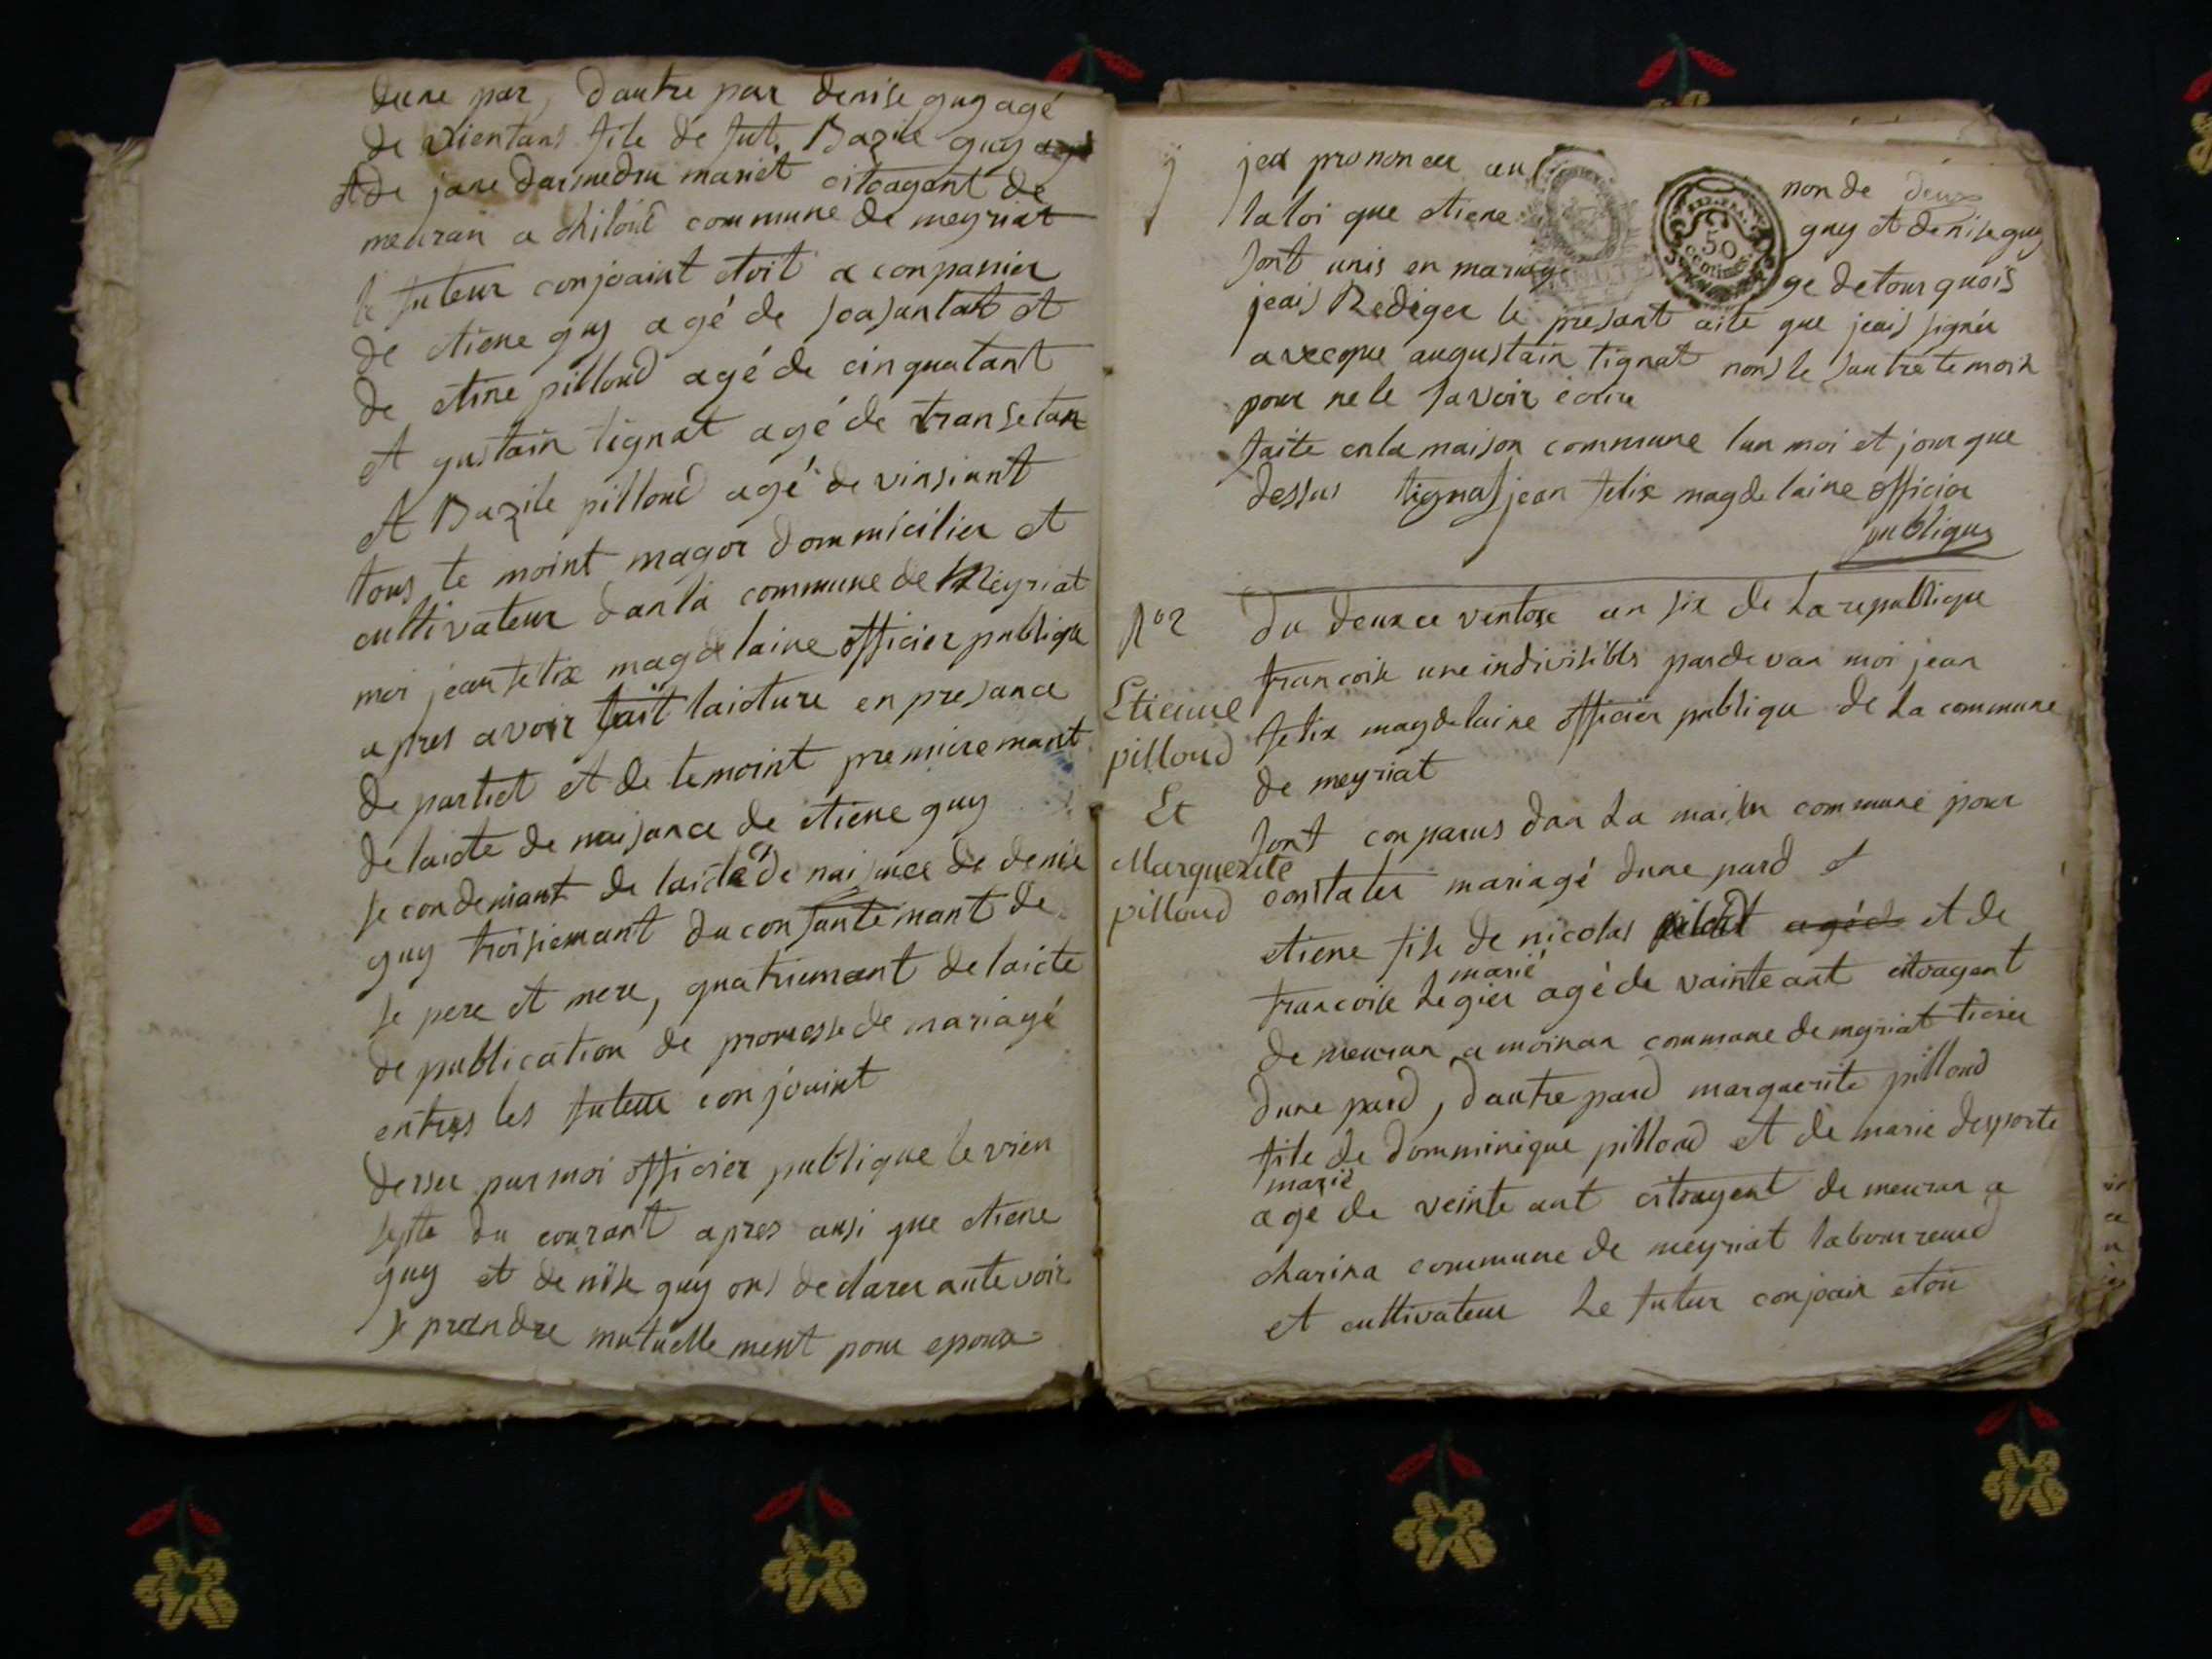 dune par, dautre par denise guy agé
de vientans file de fut. Bazile guy
et de jane mariet citoagent de
meuran a chiloud commune de meyriat
le futeur conjoaint etoit a conpanier
de etiene guy agé de soasantant et
de etine pilloud agé de cinquatant
et gustain tignat agé de transetan
et Bazile pilloud agé de vinsiant
tous te moint magor dommicilier et
cultivateur dan la commune de Meyriat
moi jean felix magdelaine officier publique
apres avoir fait laicture en presance
de partiet et de temoint premieremant
de laicte de naisance de etiene guy
secondemant de laicte de naisance de denise
guy troisiemant du consantemant de
se pere et mere, quatriemant de laicte
de publication de promesse de mariagé
entres les futeur conjouint
dersee par moi officier publique le vien
septe du courant apres ausi que etiene
guy et denise guy ons declarer autevoir
se prandre mutuellement pour epoux
jea prononcer au non de
la loi que etiene guy et denise guy
sont unis en mariage
jeais Rediger le presant aite que jeais signér
avecque augustain tignat nons le sautre temoin
pour ne le savoir écrire
faite en la maison commune lan moi et jour que
dessus tignat jean felix magdelaine officier
publique
N°2
Etienne
pilloud
Et
Marguerite
pilloud
du deuxce ventose an six de La republique
francoise une indivisibles pardevan moi jean
felix magdelaine officier publique de La commune
de meyriat
sont conparus dan La maison commune pour
constater mariagé dune pard et
etiene fils de nicolas et de
marié
francoise Legier agé de vainte ant citoagent
de meuran a moinan commune de meyriat
dune pard, dautre pard marguerite pilloud
file de domminique pilloud et de marie desporte
marié
age de veinte ant citoagent de meuran a
charina commune de meyriat laboureurd
et cultivateur Le futur conjoain etoi
REP. FRA.
50
centimes